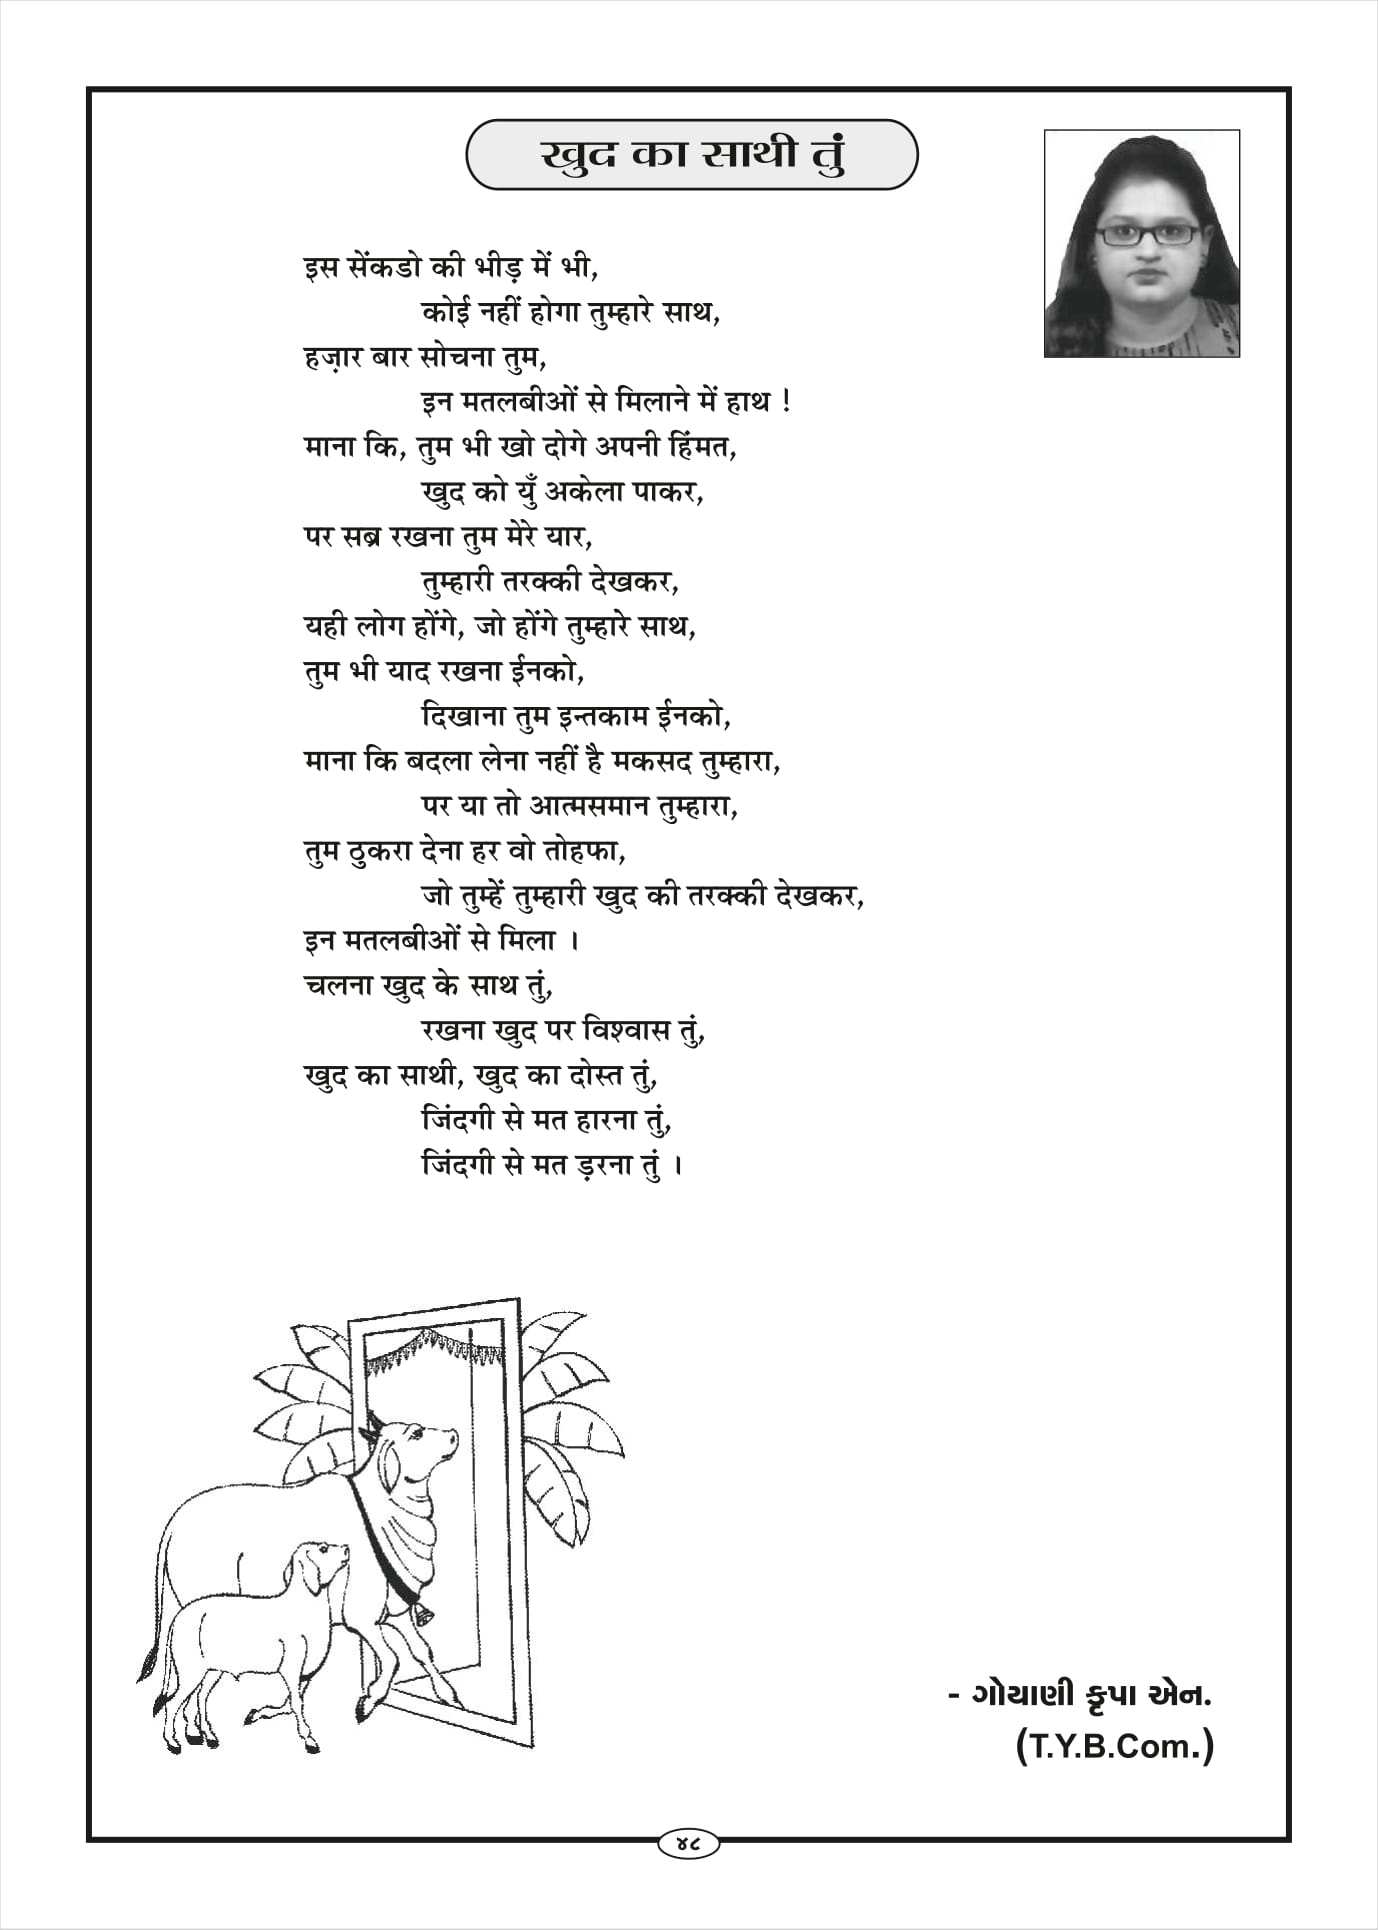 खुद का साथी तुं
इस सेंकडो की भीड़ में भी,
कोई नहीं होगा तुम्हारे साथ,
हज़ार बार सोचना तुम,
इन मतलबीओं से मिलाने में हाथ !
माना कि, तुम भी खो दोगे अपनी हिंमत,
खुद को युँ अकेला पाकर,
पर सब्र रखना तुम मेरे यार,
तुम्हारी तरक्की देखकर,
यही लोग होंगे, जो होंगे तुम्हारे साथ,
तुम भी याद रखना ईनको,
दिखाना तुम इन्तकाम ईनको,
माना कि बदला लेना नहीं है मकसद तुम्हारा,
पर या तो आत्मसमान तुम्हारा,
तुम ठुकरा देना हर वो तोहफा,
जो तुम्हें तुम्हारी खुद की तरक्की देखकर,
इन मतलबीओं से मिला ।
चलना खुद के साथ तुं,
रखना खुद पर विश्वास तुं,
खुद का साथी, खुद का दोस्त तुं,
जिंदगी से मत हारना तुं,
जिंदगी से मत ड़रना तुं ।
- ગોયાણી કૃપા એન.
(T.Y.B.Com.)
૪૮